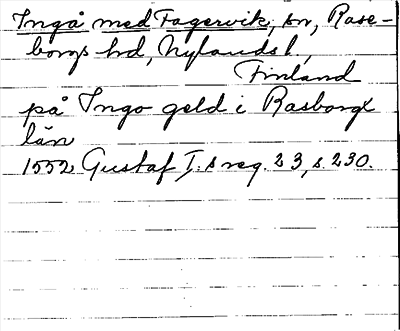 Ingå med Fagervik, sn, Rase-
borgs hd, Nylands l.,
Finland
på Ingo geld i Rasborgx
län
1552 Gustaf I:s reg. 23, s. 230.